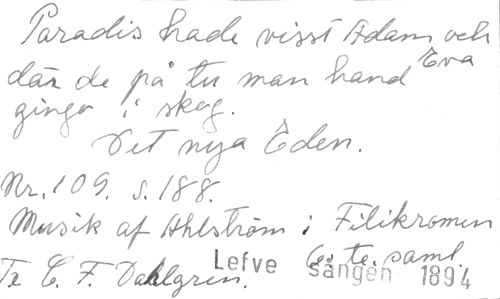 Paradis hade visst Adam och Eva
där de på tu man hand
gingo i skog.
Det nya Eden.
Nr. 109. s. 188.
Musik af Ahlström i Filikromen
6. te. saml.
Te C. F. Dahlgren. Lefve sången 1894